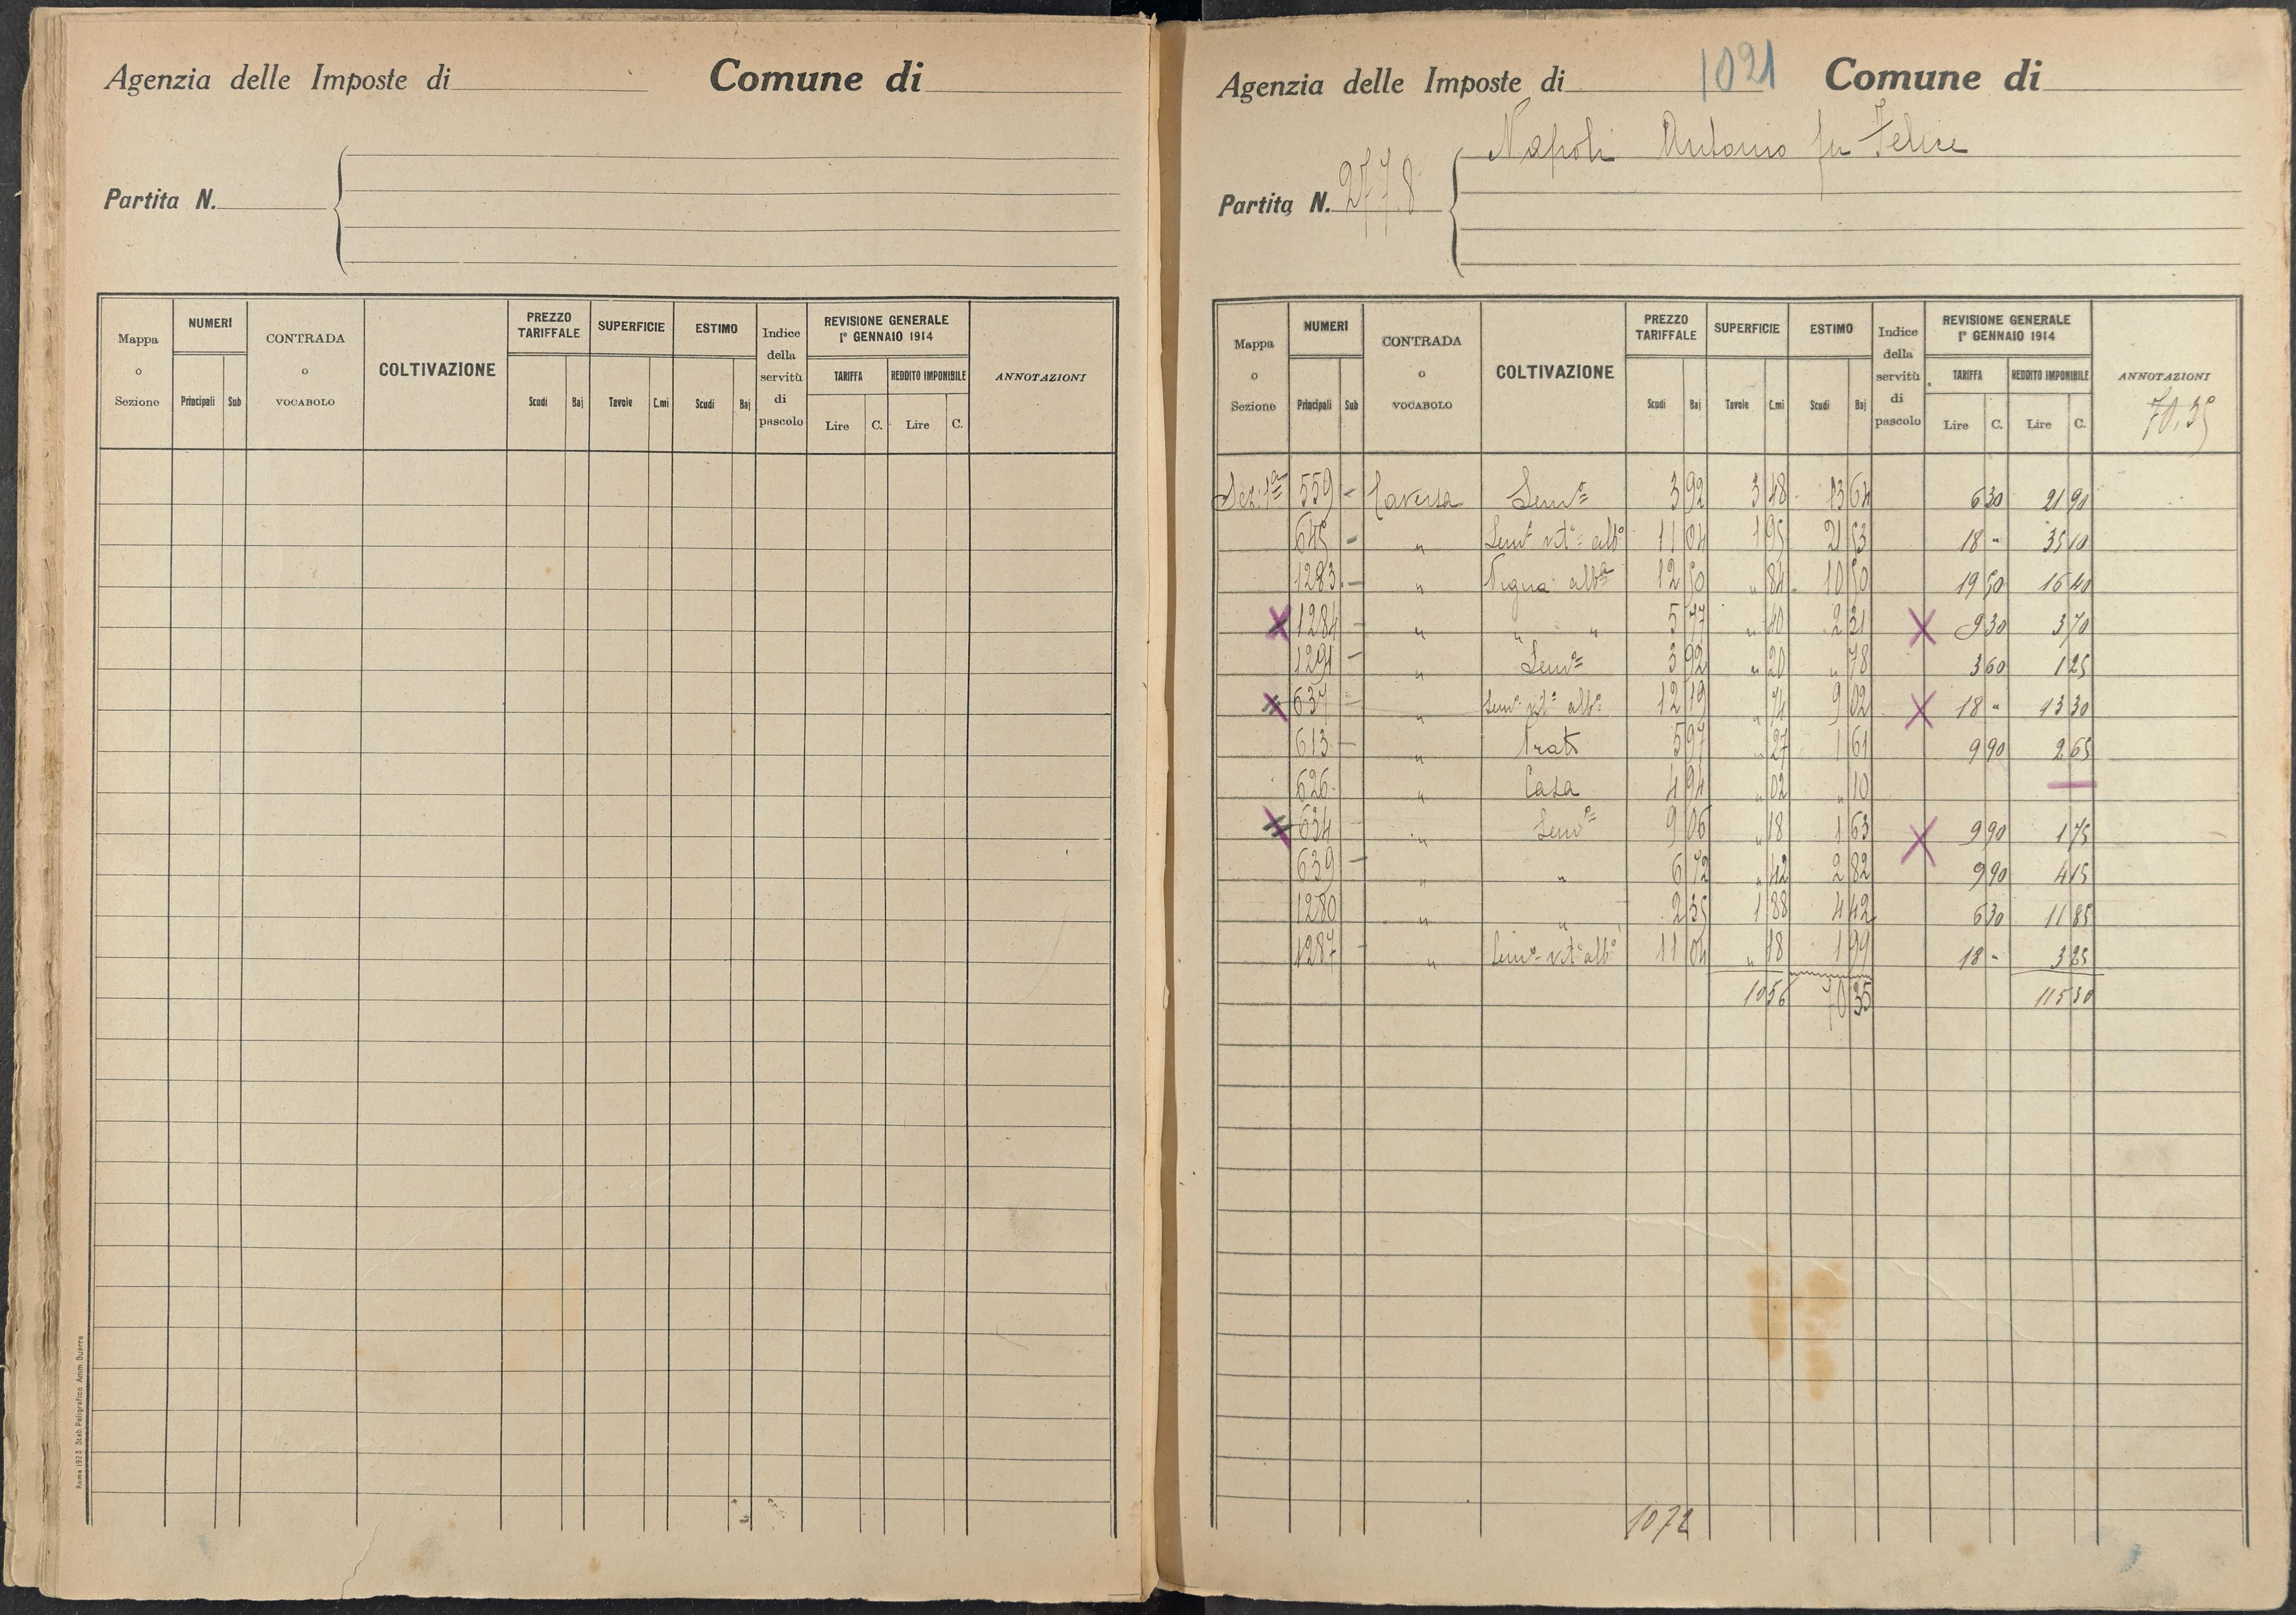 Agenzia delle Imposte di Comune di
Partita N.
Mappa o Sezione NUMERI CONTRADA o VOCABOLO COLTIVAZIONE PREZZO TARIFFALE SUPERFICIE ESTIMO Indice della servitù di pascolo REVISIONE GENERALE 1° GENNAIO 1914 ANNOTAZIONI
TARIFFA REDDITO IMPONIBILE
Principali Sub Scudi Baj Tavole C.mi Scudi Baj Lire C. Lire C.
Roma 1923 Stab. Poligrafico Amm. Guerra
Agenzia delle Imposte di 1021 Comune di
Napoli Antonio fu Felice
Partita N. 2778
Mappa o Sezione NUMERI CONTRADA o VOCABOLO COLTIVAZIONE PREZZO TARIFFALE SUPERFICIE ESTIMO Indice della servitù di pascolo REVISIONE GENERALE 1° GENNAIO 1914 ANNOTAZIONI
TARIFFA REDDITO IMPONIBILE
Principali Sub Scudi Baj Tavole C.mi Scudi Baj Lire C. Lire C.
70,35
Sez: 1ª 559 - Caversa Semº 3 92 3 48 13 64 6 30 21 90
645 - " Semº vitº albº 11 04 1 95 21 53 18 " 35 10
1283 - " Vigna albª 12 50 " 84 10 50 19 50 16 40
X 1284 - " " " 5 77 " 40 2 31 X 9 30 3 70
1291 - " Semº 3 92 " 20 " 78 3 60 1 25
X 637 - " Semº vitº albº 12 19 " 74 9 02 X 18 " 13 30
613 - " Prato 5 97 " 27 1 61 9 90 2 65
626 " Casa 4 94 " 02 " 10
X 634 - " Semº 9 06 " 18 1 63 X 9 90 1 75
639 - " " 6 72 " 42 2 82 9 90 4 15
1280 " " 2 35 1 88 4 42 6 30 11 85
1287 - " Semº vitº albº 11 04 " 18 1 99 18 " 3 25
10 56 70 35 115 30
1072